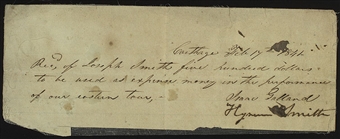 Carthage Feb 17 1841
Recd of Joseph Smith five hundred dollars
to be used as expense money in the performance
of our eastern tour,
Isaac Galland
Hyrum Smith